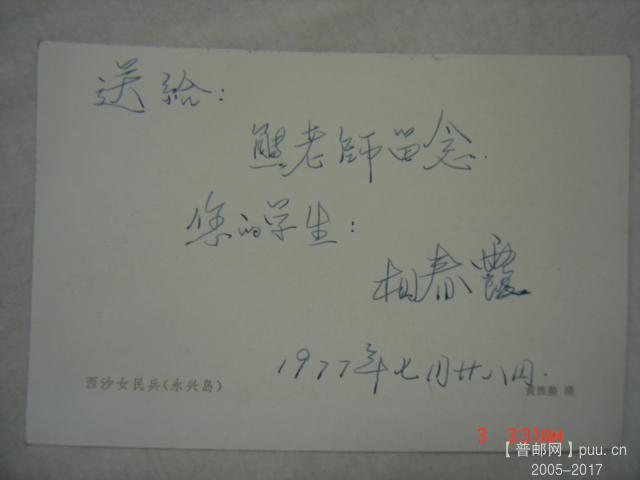 送给：
熊老師留念.
您的学生：
相春霞
1977年七月廿八日.
西沙女民兵(永兴岛)
摄
3 3:31AM
【普邮网】puu.cn
2005-2017